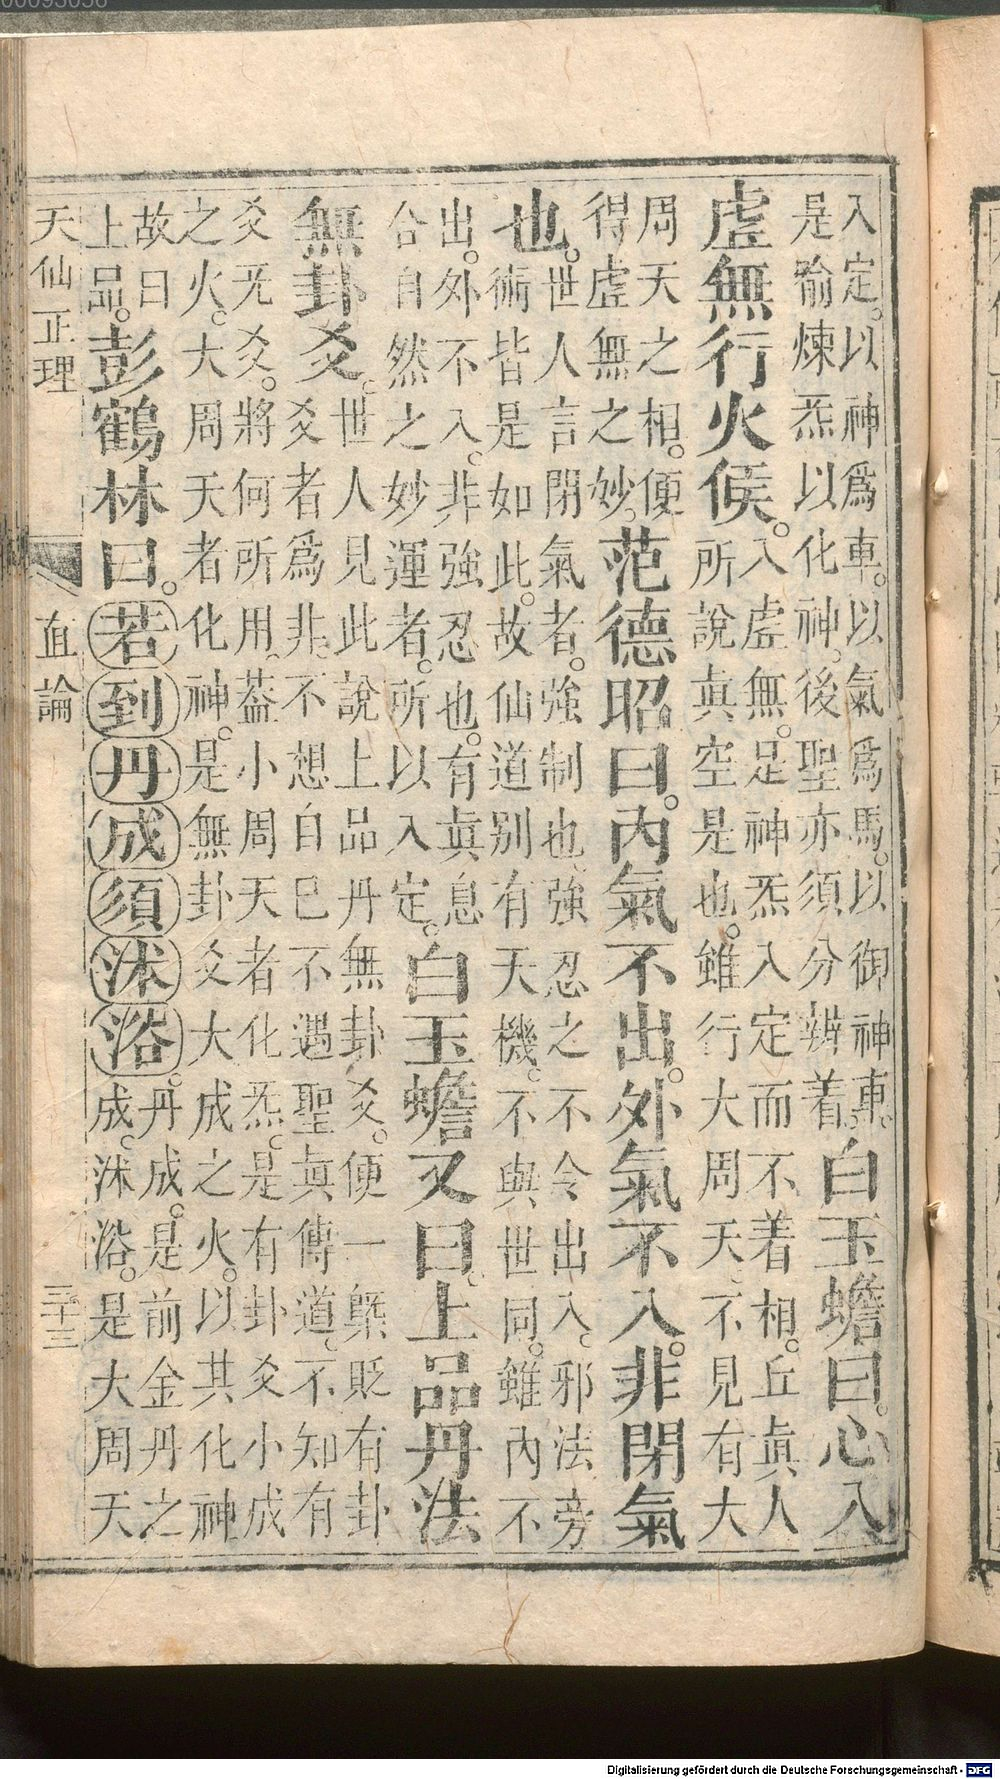 入定。以神爲車。以氣爲馬。以御神車。
是喻煉炁以化神。後聖亦須分辨着。
白玉蟾曰。心入
虛無行火候。
入虛無。足神炁入定而不着相。丘真人
所說真空是也。雖行大周天。不見有大
周天之相。便
得虛無之妙。
范德昭曰。內氣不出。外氣不入。非閉氣
也。
世人言閉氣者。強制也。強忍之不令出入。邪法旁
術皆是如此。故仙道別有天機。不與世同。雖內不
出。外不入。非強忍也。有真息
合自然之妙運者。所以入定。
白玉蟾又曰。上品丹法
無卦爻。
世人見此說上品丹無卦爻。便一槩貶有卦
爻者爲非。不想自己不遇聖真傳道。不知有
爻无爻。將何所用。葢小周天者化炁。是有卦爻小成
之火。大周天者化神。是無卦爻大成之火。以其化神
故曰
上品。
彭鶴林曰。若到丹成須沐浴。
丹成。是前金丹之
成。沐浴。是大周天
天仙正理 直論 三十三
Digitalisierung gefördert durch die Deutsche Forschungsgemeinschaft - DFG